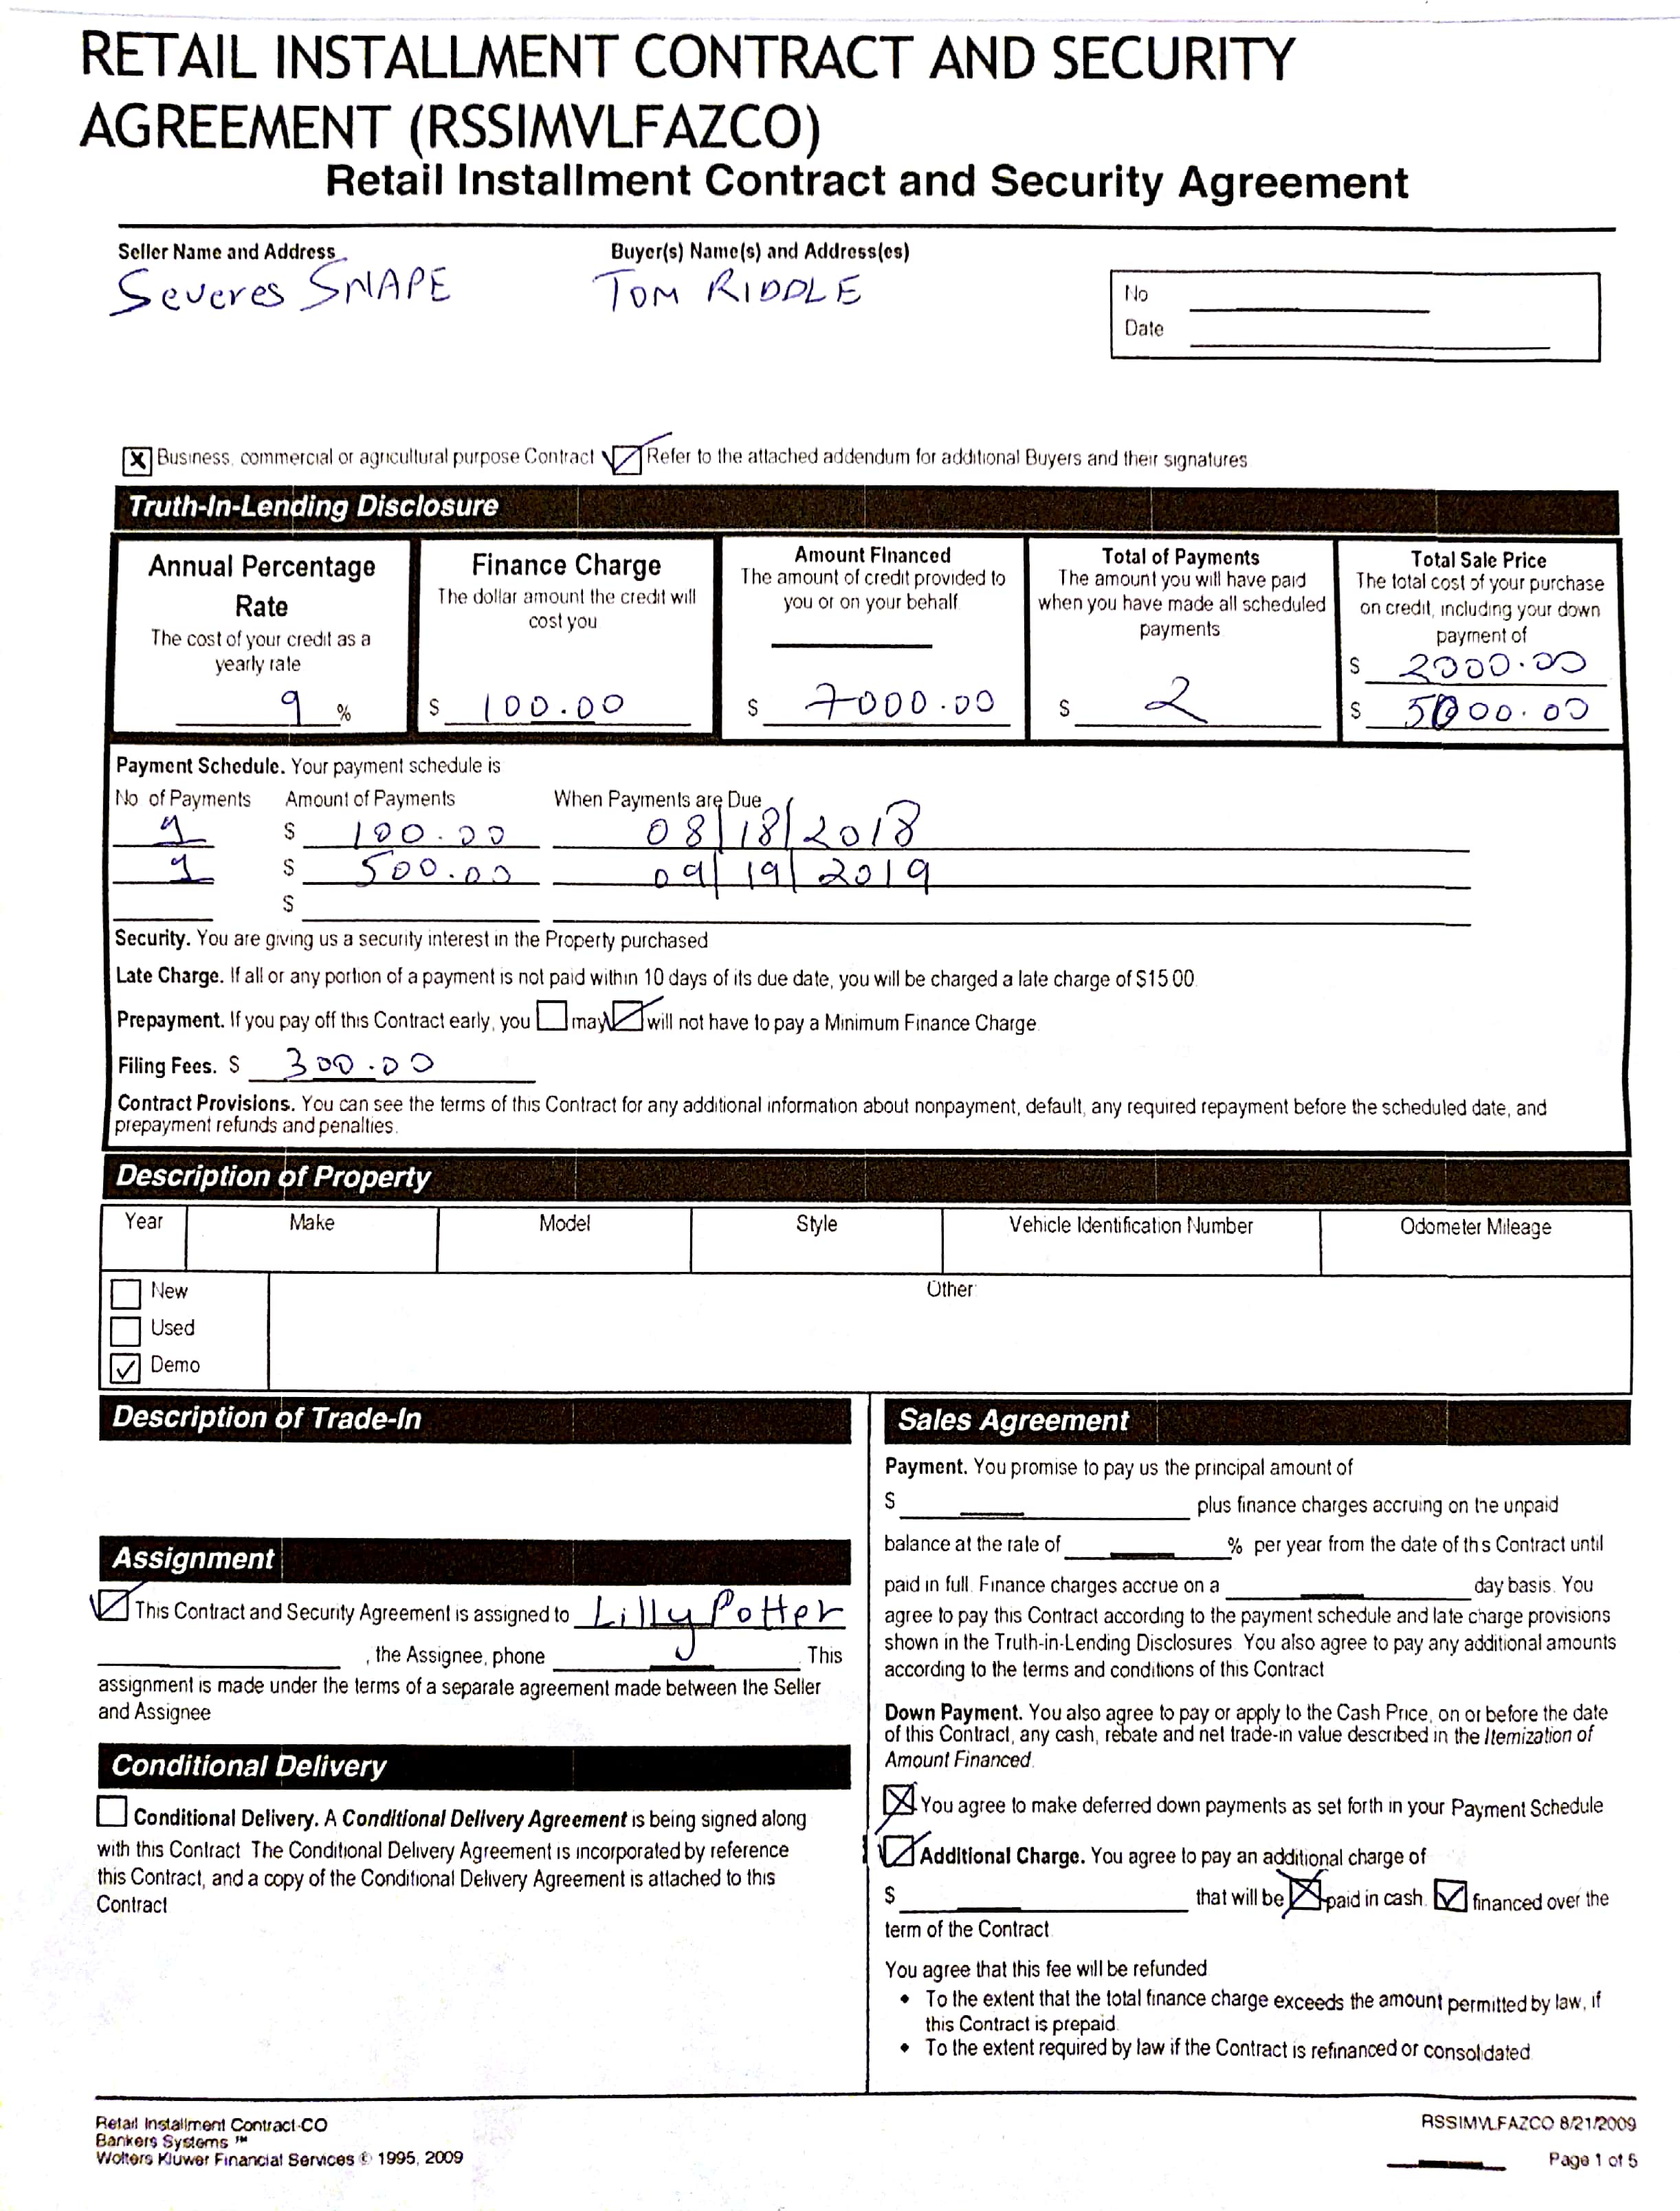 RETAIL INSTALLMENT CONTRACT AND SECURITY
AGREEMENT (RSSIMVLFAZCO)
Retail Installment Contract and Security Agreement
Seller Name and Address
Severes SNAPE
Buyer(s) Name(s) and Address(es)
TOM RIDDLE
No
Date
Business, commercial or agricultural purpose Contract
Refer to the attached addendum for additional Buyers and their signatures
Truth-In-Lending Disclosure
Annual Percentage
Rate
The cost of your credit as a
yearly rate
9 %
Finance Charge
The dollar amount the credit will
cost you
$ 100.00
Amount Financed
The amount of credit provided to
you or on your behalf
$ 7000.00
Total of Payments
The amount you will have paid
when you have made all scheduled
payments
$ 2
Total Sale Price
The total cost of your purchase
on credit, including your down
payment of
$ 2000.00
$ 5000.00
Payment Schedule. Your payment schedule is
No of Payments Amount of Payments When Payments are Due
1 $ 100.00 08/18/2018
1 $ 500.00 09/19/2019
$
Security. You are giving us a security interest in the Property purchased
Late Charge. If all or any portion of a payment is not paid within 10 days of its due date, you will be charged a late charge of $15 00
Prepayment. If you pay off this Contract early, you may will not have to pay a Minimum Finance Charge
Filing Fees. $ 300.00
Contract Provisions. You can see the terms of this Contract for any additional information about nonpayment, default, any required repayment before the scheduled date, and
prepayment refunds and penalties.
Description of Property
Year Make Model Style Vehicle Identification Number Odometer Mileage
New
Used
Demo
Other
Description of Trade-In
Assignment
This Contract and Security Agreement is assigned to Lilly Potter
, the Assignee, phone This
assignment is made under the terms of a separate agreement made between the Seller
and Assignee
Conditional Delivery
Conditional Delivery. A Conditional Delivery Agreement is being signed along
with this Contract The Conditional Delivery Agreement is incorporated by reference
this Contract, and a copy of the Conditional Delivery Agreement is attached to this
Contract
Sales Agreement
Payment. You promise to pay us the principal amount of
$ plus finance charges accruing on the unpaid
balance at the rate of % per year from the date of ths Contract until
paid in full. Finance charges accrue on a day basis. You
agree to pay this Contract according to the payment schedule and late charge provisions
shown in the Truth-in-Lending Disclosures. You also agree to pay any additional amounts
according to the terms and conditions of this Contract
Down Payment. You also agree to pay or apply to the Cash Price, on or before the date
of this Contract, any cash, rebate and net trade-in value described in the Itemization of
Amount Financed.
You agree to make deferred down payments as set forth in your Payment Schedule
Additional Charge. You agree to pay an additional charge of
$ that will be paid in cash. financed over the
term of the Contract
You agree that this fee will be refunded
• To the extent that the total finance charge exceeds the amount permitted by law, if
this Contract is prepaid.
• To the extent required by law if the Contract is refinanced or consolidated
Retail Installment Contract-CO
Bankers Systems ™
Wolters Kluwer Financial Services © 1995, 2009
RSSIMVLFAZCO 8/21/2009
Page 1 of 5